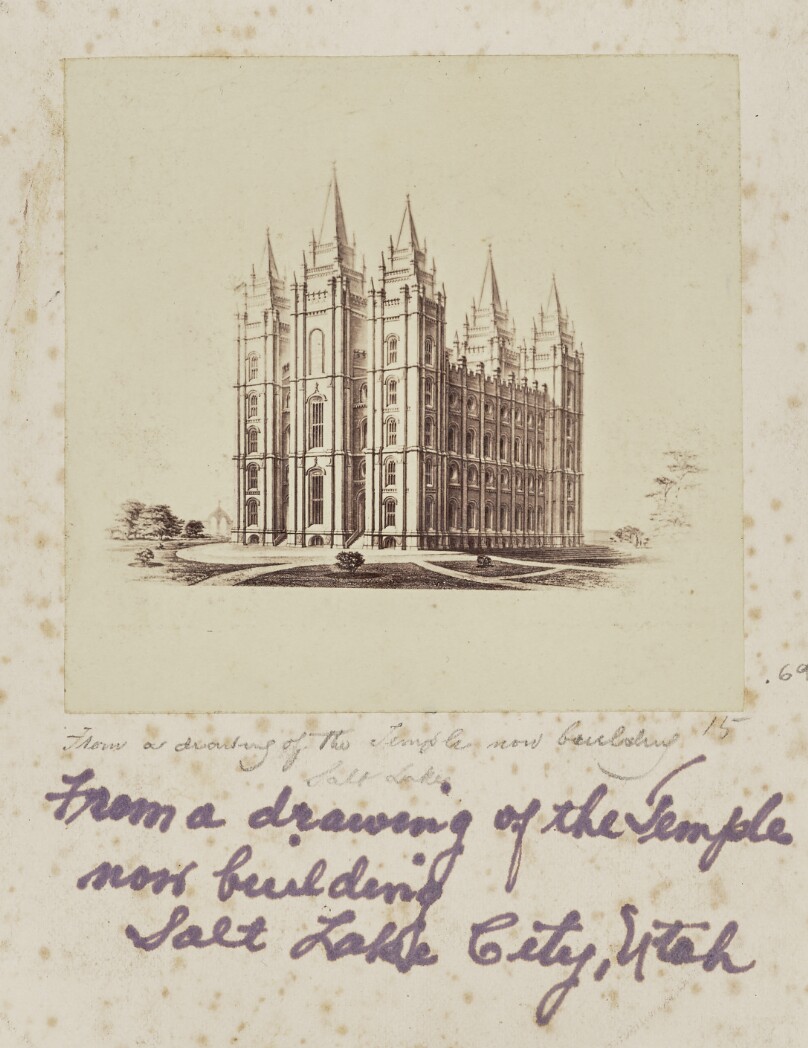 .69
15
From a drawing of the Temple now building
Salt Lake
From a drawing of the Temple
now building
Salt Lake City, Utah